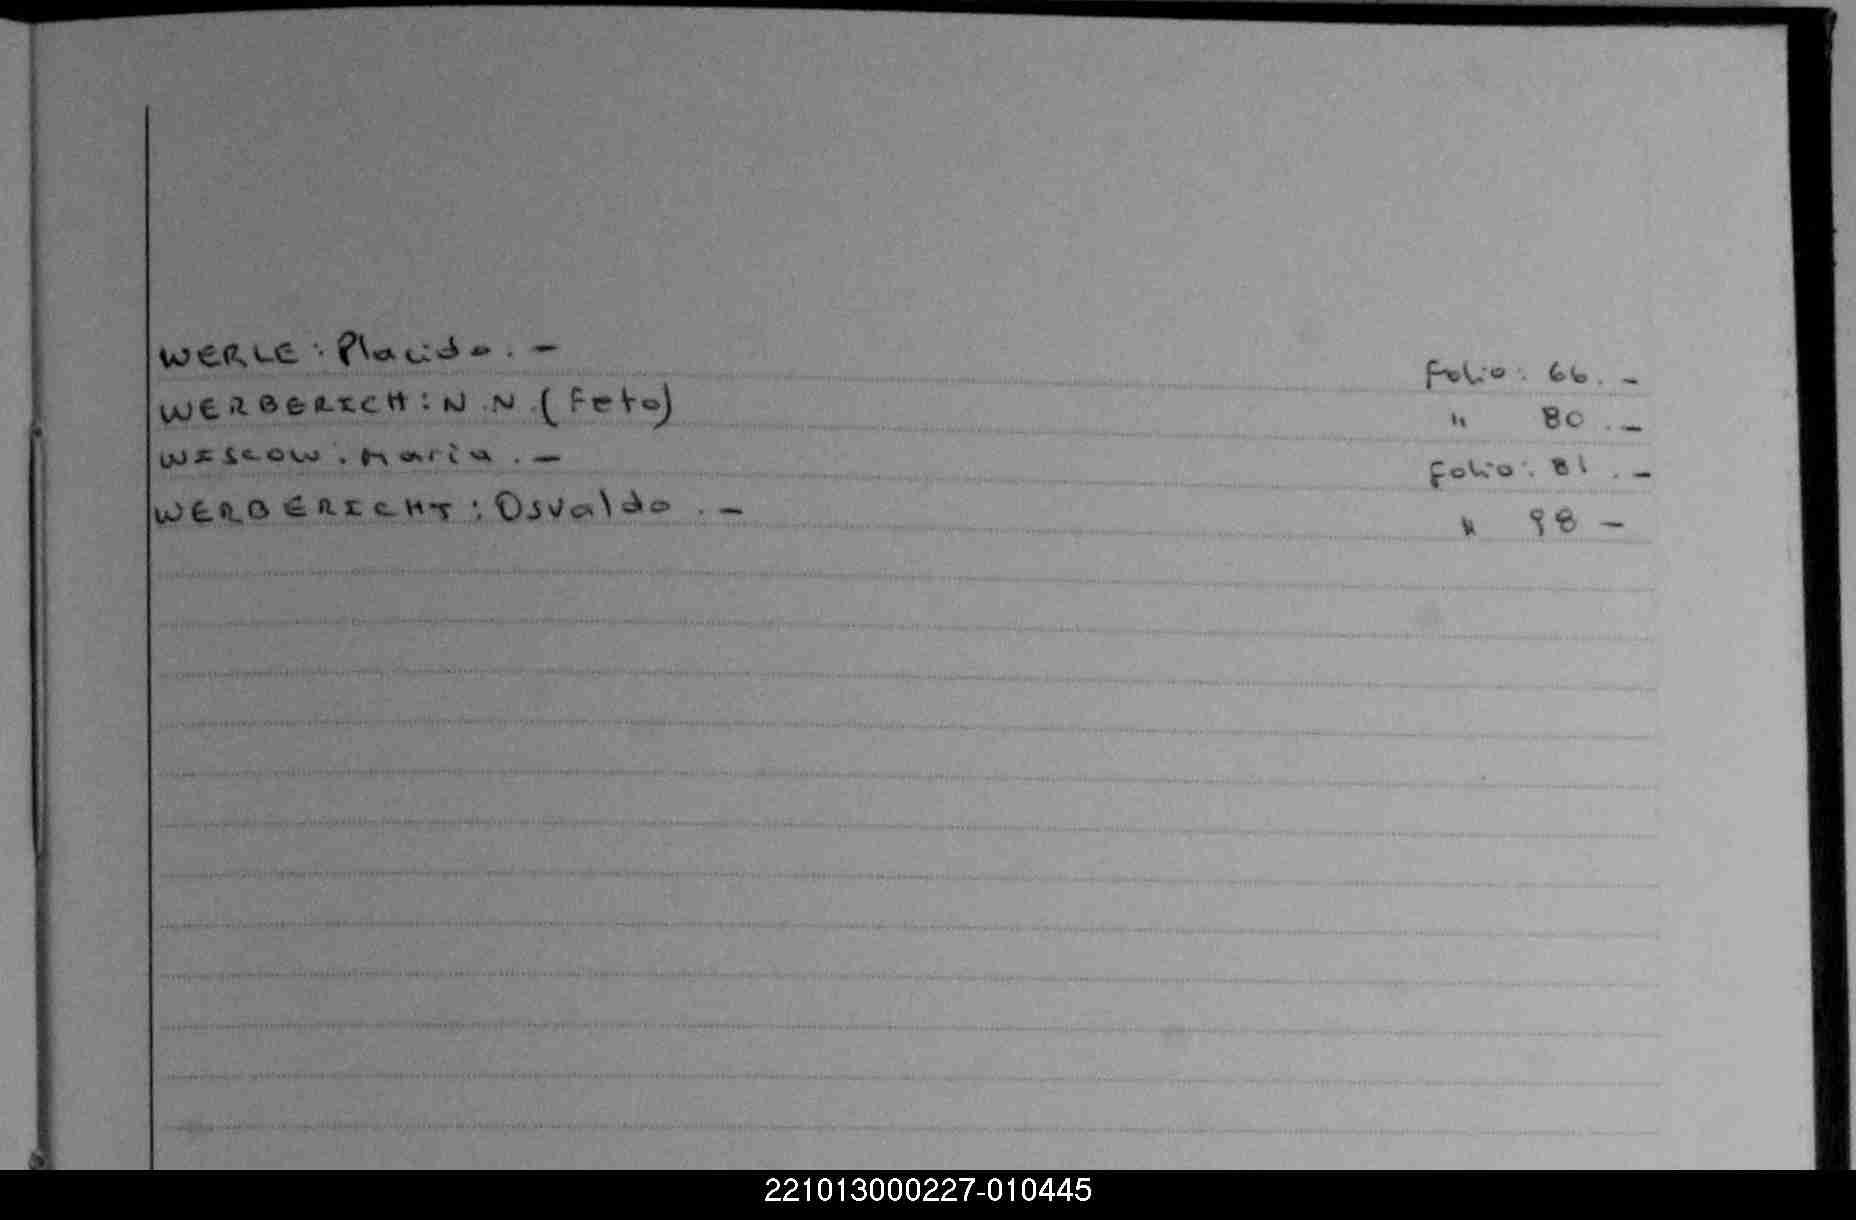 WERLE: Placido. - Folio: 66. -
WERBERICH: N.N. (Feto) " 80. -
WISCOW: Maria. - Folio: 81. -
WERBERICHT: Osvaldo. - " 98 -
221013000227-010445